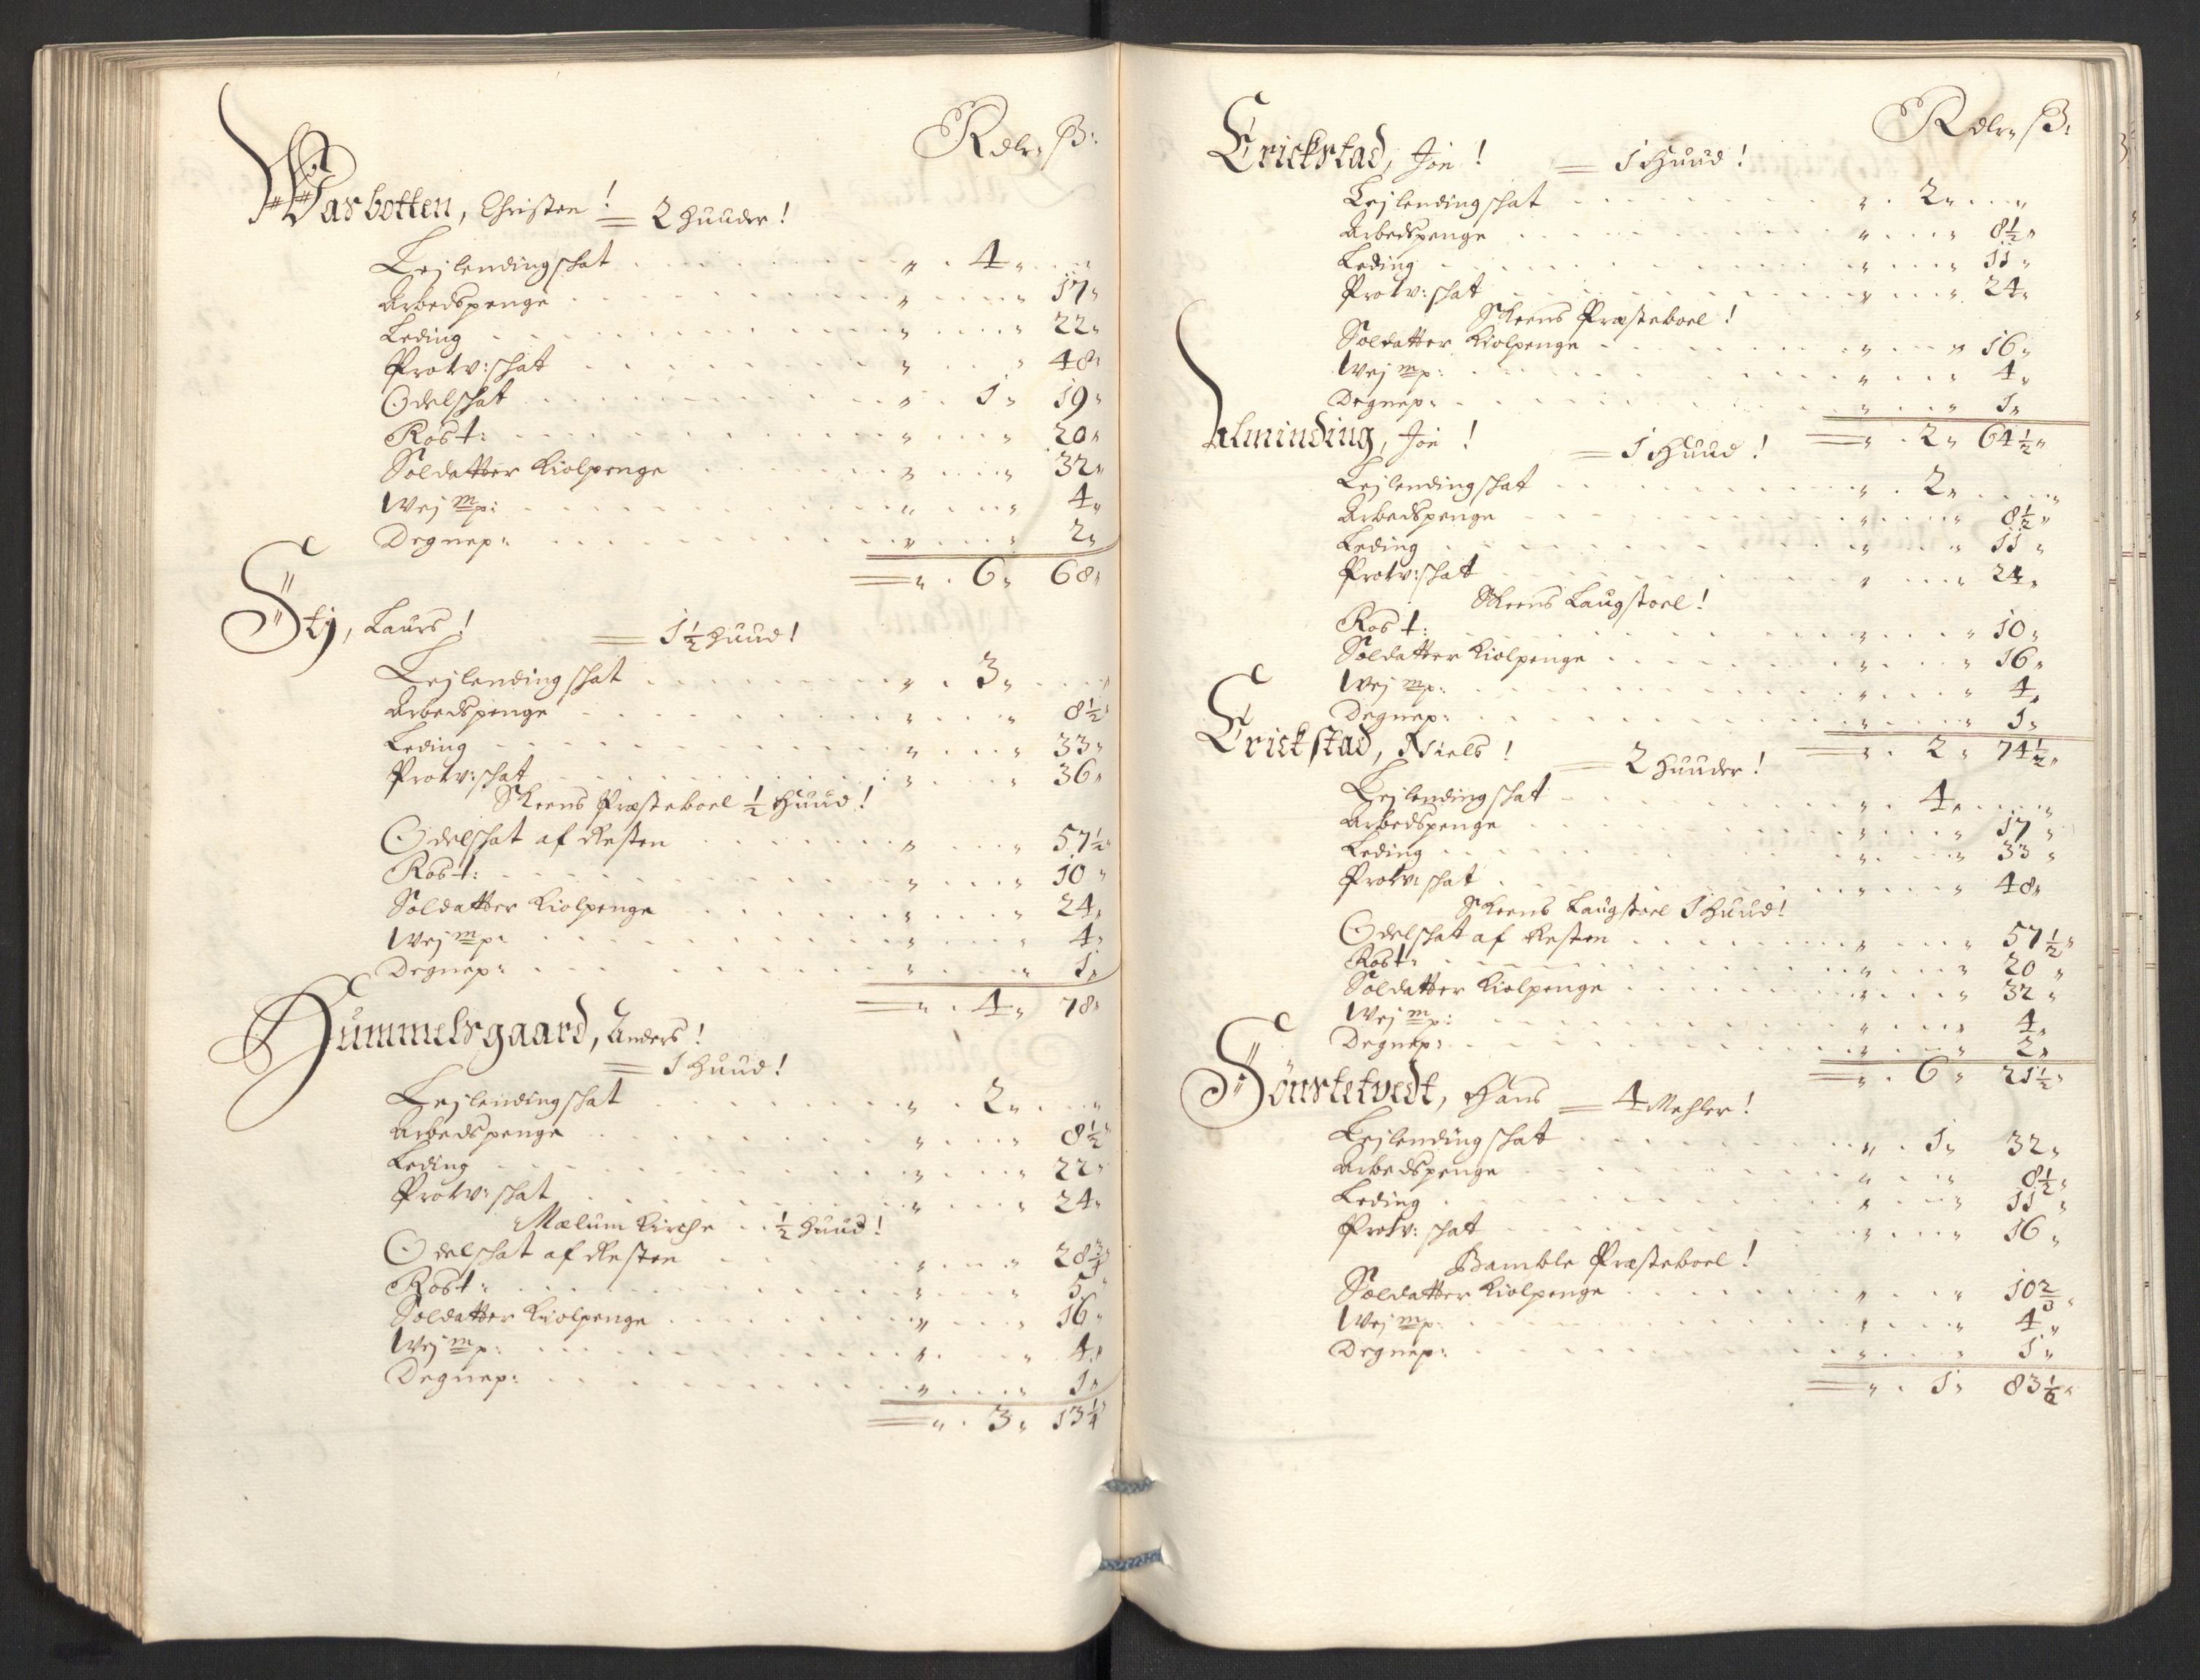 Rdlr„ ß:
Wasbotten, Christen! = 2 huuder!
Lejlendingschat „ 4„ „
Arbedspenge „ „ 17„
Leding „ „ 22„
Prowv: schat „ „ 48„
Odelschat „ 1„ 19„
Rost: „ „ 20„
Soldatter Kiolpenge „ „ 32„
Wej m p: „ „ 4„
Degnep: „ „ 2„
= „ 6„ 68„
Stij, Laurs! = 1 1/2 huud!
Lejlendingschat „ 3„ „
Arbedspenge „ „ 8 1/2
Leding „ „ 33„
Prowv: schat „ „ 36„
Skeens Præsteboel 1/2 huud!
Odelschat af Resten „ „ 57 1/2
Rost: „ „ 10„
Soldatter Kiolpenge „ „ 24„
Wej m p: „ „ 4„
Degnep: „ „ 1„
= „ 4„ 78„
Hummelsgaard, Anders!
= 1 huud!
Lejlendingschat „ 2„ „
Arbedspenge „ „ 8 1/2
Leding „ „ 22„
Prowv: schat „ „ 24„
Mælum Kirche 1/2 huud!
Odelschat af Resten „ „ 28 3/4
Rost: „ „ 5„
Soldatter Kiolpenge „ „ 16„
Wej m p: „ „ 4„
Degnep: „ „ 1„
= „ 3„ 13 1/4
Rdlr„ ß:
Erickstad, Jon! = 1 huud!
Lejlendingschat „ 2„ „
Arbedspenge „ „ 8 1/2„
Leding „ „ 11„
Prowv: schat „ „ 24„
Skeens Præsteboel!
Soldatter Kiolpenge „ „ 16„
Wej m p: „ „ 4„
Degnep: „ „ 1„
= „ 2„ 64 1/2„
Alminding, Jon! = 1 huud!
Lejlendingschat „ 2„ „
Arbedspenge „ „ 8 1/2„
Leding „ „ 11„
Prowv: schat „ „ 24„
Skeens Laugstoel!
Rost: „ „ 10„
Soldatter Kiolpenge „ „ 16„
Wej m p: „ „ 4„
Degnep: „ „ 1„
= „ 2„ 74 1/2„
Erickstad, Niels! = 2 huuder!
Lejlendingschat „ 4„ „
Arbedspenge „ „ 17„
Leding „ „ 33„
Prowv: schat „ „ 48„
Skeens Laugstoel 1 huud!
Odelschat af Resten „ „ 57 1/2„
Rost: „ „ 20„
Soldatter Kiolpenge „ „ 32„
Wej m p: „ „ 4„
Degnep: „ „ 2„
= „ 6„ 21 1/2„
Sönstetvedt, Hans = 4 Mehler!
Lejlendingschat „ 1„ 32„
Arbedspenge „ „ 8 1/2„
Leding „ „ 11„
Prowv: schat „ „ 16„
Bamble Præsteboel!
Soldatter Kiolpenge „ „ 10 2/3„
Wej m p: „ „ 4„
Degnep: „ „ 1„
= „ 1„ 83 1/6„